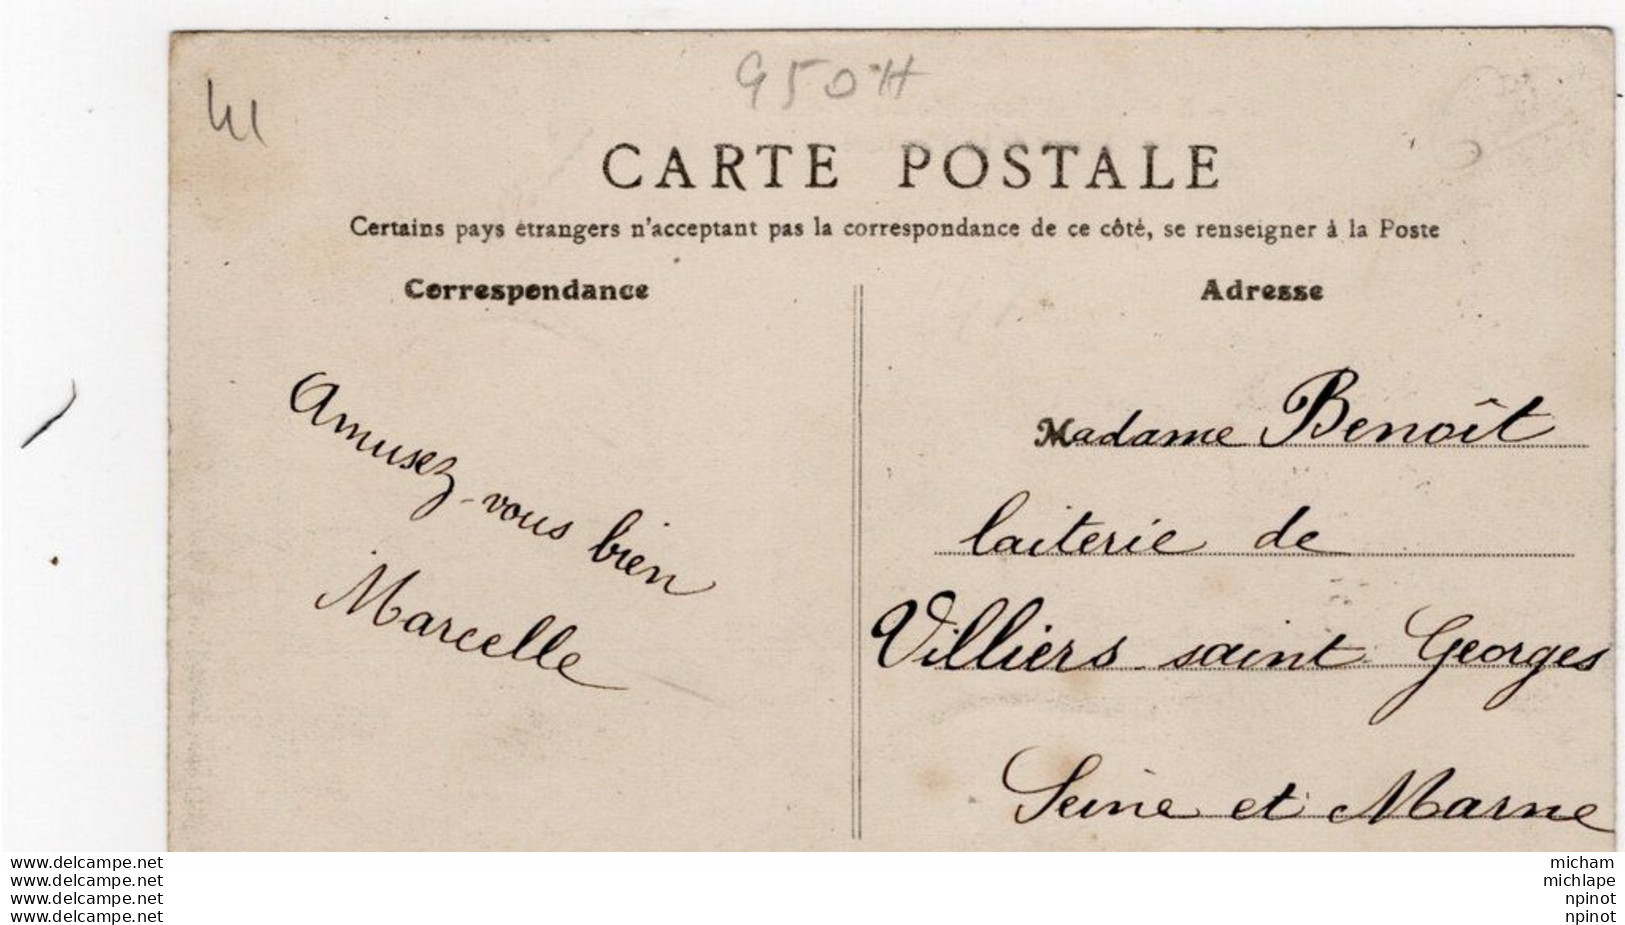 41
950H
CARTE POSTALE
Certains pays étrangers n'acceptant pas la correspondance de ce côté, se renseigner à la Poste
Correspondance
Amusez-vous bien
Marcelle
Adresse
Madame Benoît
laiterie de
Villiers saint Georges
Seine et Marne
www.delcampe.net
www.delcampe.net
www.delcampe.net
www.delcampe.net
micham
michlape
npinot
npinot